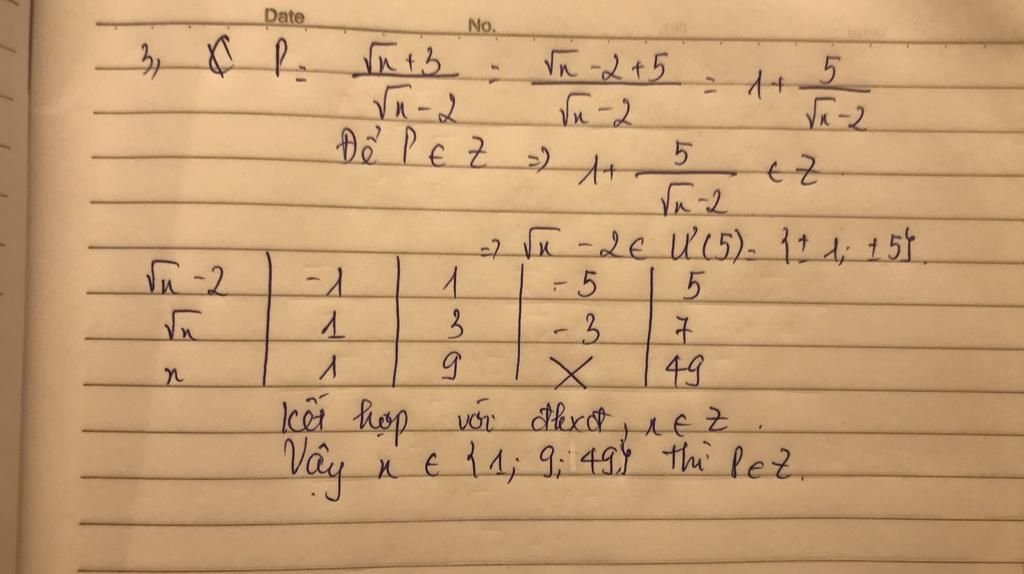 Date No.
3, P = \frac{\sqrt{x}+3}{\sqrt{x}-2} = \frac{\sqrt{x}-2+5}{\sqrt{x}-2} = 1+ \frac{5}{\sqrt{x}-2}
Để P ∈ Z => 1+ \frac{5}{\sqrt{x}-2} ∈ Z
=> √x -2 ∈ Ư(5)= {± 1; ±5}.
√x -2 | -1 | 1 | -5 | 5
√x | 1 | 3 | -3 | 7
x | 1 | 9 | X | 49
Kết hợp với đkxđ, x ∈ Z.
Vậy x ∈ {1; 9; 49} thì P ∈ Z.